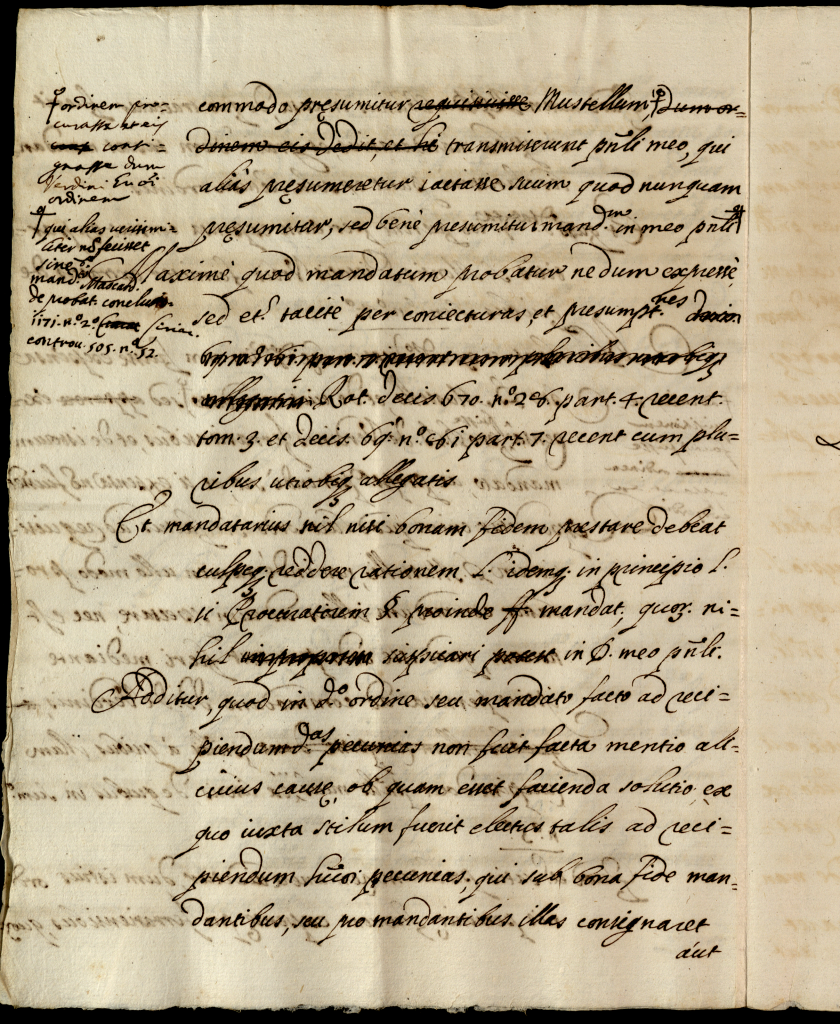 ordinem pro=
curasse et eis
consi=
gnasse dum
ordinem
qui alias verisimi=
liter nõ fecisset
sine
mand.to Mascard.
de probat. conclus.
1171. n.º 2.º
controu. 505. n.º 52.
commodo pręsumitur requisivisse Mustellum, dum or=
dinem eis dedit, et transmiserunt pñli meo, qui
aliàs pręsumeretur iactasse suum quod nunquam
pręsumitur, sed benè presumitur mand.m in meo pñli
Maximè, quòd mandatum probatur nedum expressè,
sed et.ª tacitè per coniecturas, et presumpt.nes
Rot. decis. 670. n.º 26. part. 4. recent.
tom. 3. et decis. 69. n.º 61 part. 7. recent cum plu=
ribus utrobiq3 allegatis
Et mandatarius nil nisi bonam fidem prestare debeat
culpęq3 reddere rationem. L. idemq3 in principio L.
si Procuratorem §. proinde ff. mandat; quor. ni=
hil suspicari potest in D. meo pñli.
Additur, quod in d.º ordine seu mandato facto ad reci=
piendum d.as pecunias non fuit facta mentio ali=
cuius causę, ob quam esset facienda solutio, ex
quo iuxta stilum fuerit electus talis ad reci=
piendum pecunias, qui sub bona fide man=
dantibus, seu pro mandantibus illas consignaret
aut